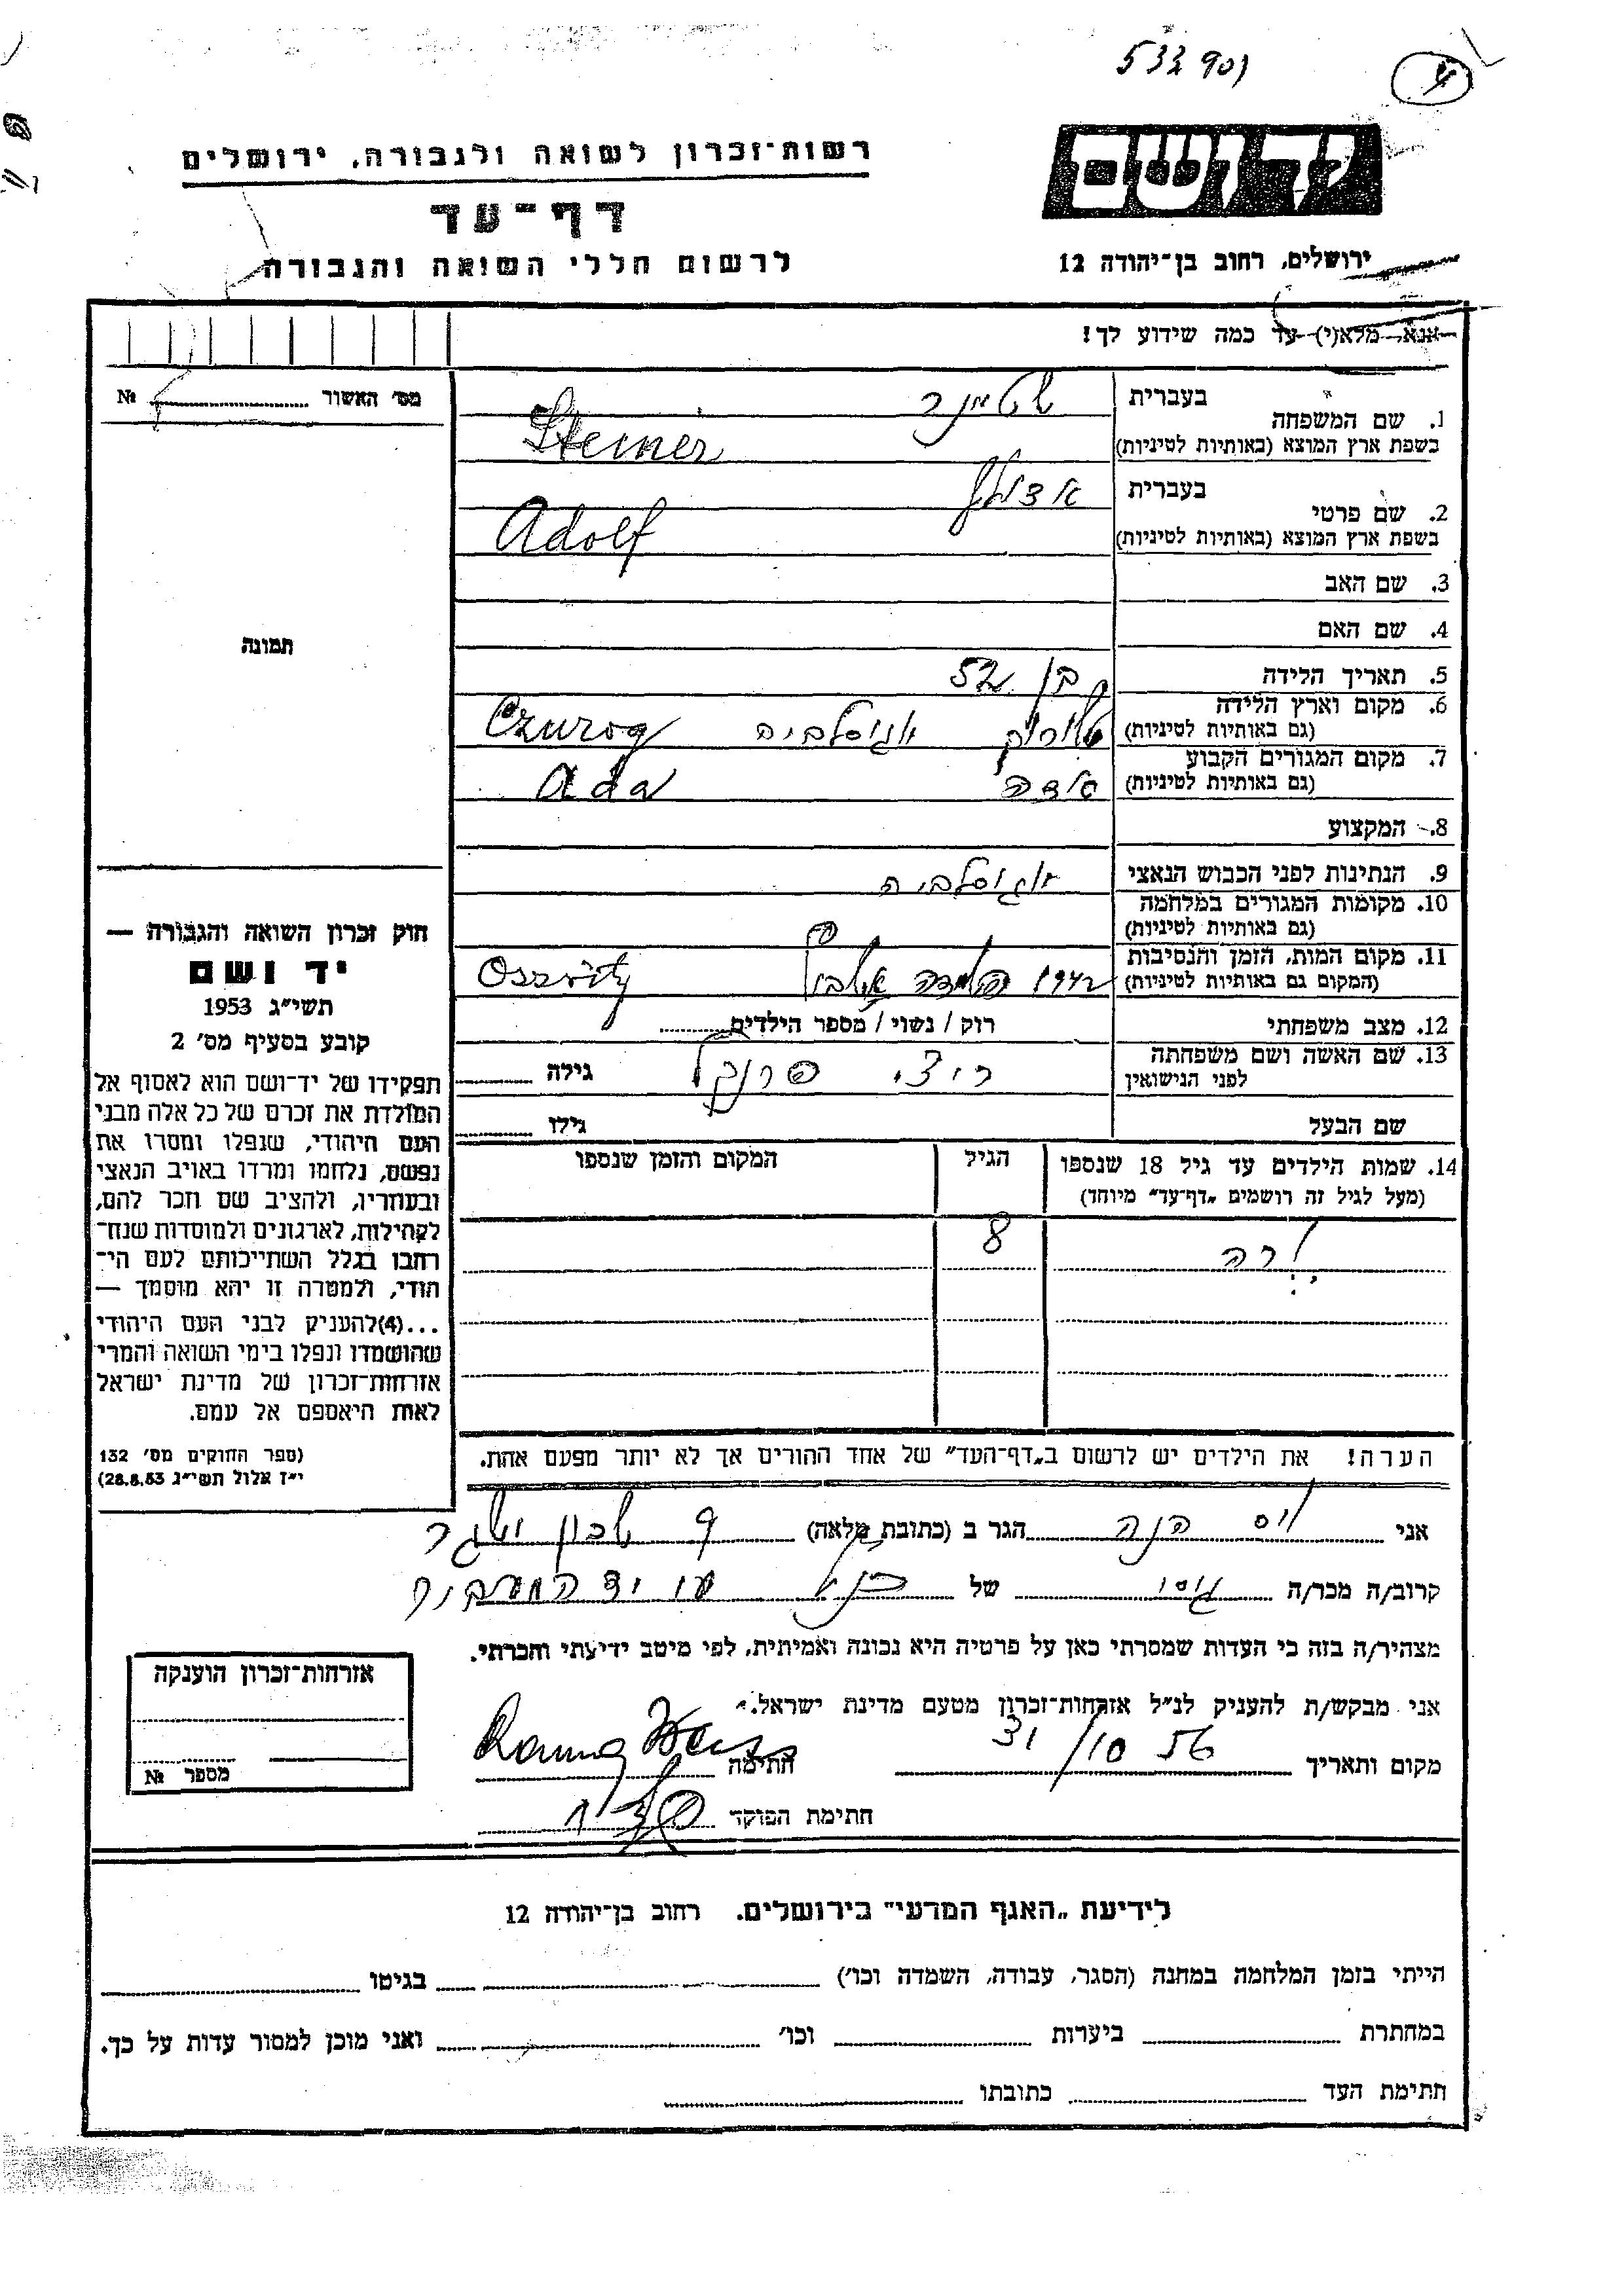 53390
4
רשות־זכרון לשואה ולגבורה, ירושלים
דף־עד
לרשום חללי השואה והגבורה
יד ושם
ירושלים, רחוב בן־יהודה 12
אנא מלא(י) עד כמה שידוע לך!
מס׳ האשור № 
תמונה
חוק זכרון השואה והגבורה —
יד ושם
תשי״ג 1953
קובע בסעיף מס׳ 2
תפקידו של יד־ושם הוא לאסוף אל
המולדת את זכרם של כל אלה מבני
העם היהודי, שנפלו ומסרו את
נפשם, נלחמו ומרדו באויב הנאצי
ובעוזריו, ולהציב שם וזכר להם,
לקהילות, לארגונים ולמוסדות שנח־
רבו בגלל השתייכותם לעם הי־
הודי, ולמטרה זו יהא מוסמך —
...(4) להעניק לבני העם היהודי
שהושמדו ונפלו בימי השואה והמרי
אזרחות־זכרון של מדינת ישראל
לאות היאספם אל עמם.
(ספר החוקים מס׳ 132
י״ז אלול תשי״ג 28.8.53)
1. שם המשפחה בעברית שטיינר
בשפת ארץ המוצא (באותיות לטיניות) Steiner
2. שם פרטי בעברית אדולף
בשפת ארץ המוצא (באותיות לטיניות) Adolf
3. שם האב
4. שם האם
5. תאריך הלידה בן 52
6. מקום וארץ הלידה (גם באותיות לטיניות) יוגוסלביה Czurog
7. מקום המגורים הקבוע (גם באותיות לטיניות) אדה Ada
8. המקצוע
9. הנתינות לפני הכבוש הנאצי יוגוסלביה
10. מקומות המגורים במלחמה (גם באותיות לטיניות)
11. מקום המות, הזמן והנסיבות (המקום גם באותיות לטיניות) Osswitz
12. מצב משפחתי רוק / נשוי / מספר הילדים
13. שם האשה ושם משפחתה לפני הנישואין ריצי פרנקל גילה
שם הבעל גילו
14. שמות הילדים עד גיל 18 שנספו הגיל המקום והזמן שנספו
(מעל לגיל זה רושמים „דף־עד״ מיוחד)
8
הערה! את הילדים יש לרשום ב„דף־העד״ של אחד ההורים אך לא יותר מפעם אחת.
אני וייס הנה הגר ב (כתובת מלאה)
קרוב/ה מכר/ה גיסו של
מצהיר/ה בזה כי העדות שמסרתי כאן על פרטיה היא נכונה ואמיתית, לפי מיטב ידיעתי והכרתי.
אני מבקש/ת להעניק לנ״ל אזרחות־זכרון מטעם מדינת ישראל.
מקום ותאריך 31/10 56 חתימה Hanna Weiss
חתימת הפוקד
אזרחות־זכרון הוענקה
מספר №
לידיעת „האגף המדעי״ בירושלים, רחוב בן־יהודה 12
הייתי בזמן המלחמה במחנה (הסגר, עבודה, השמדה וכו׳) בגיטו
במחתרת ביערות וכו׳ ואני מוכן למסור עדות על כך.
חתימת העד כתובתו